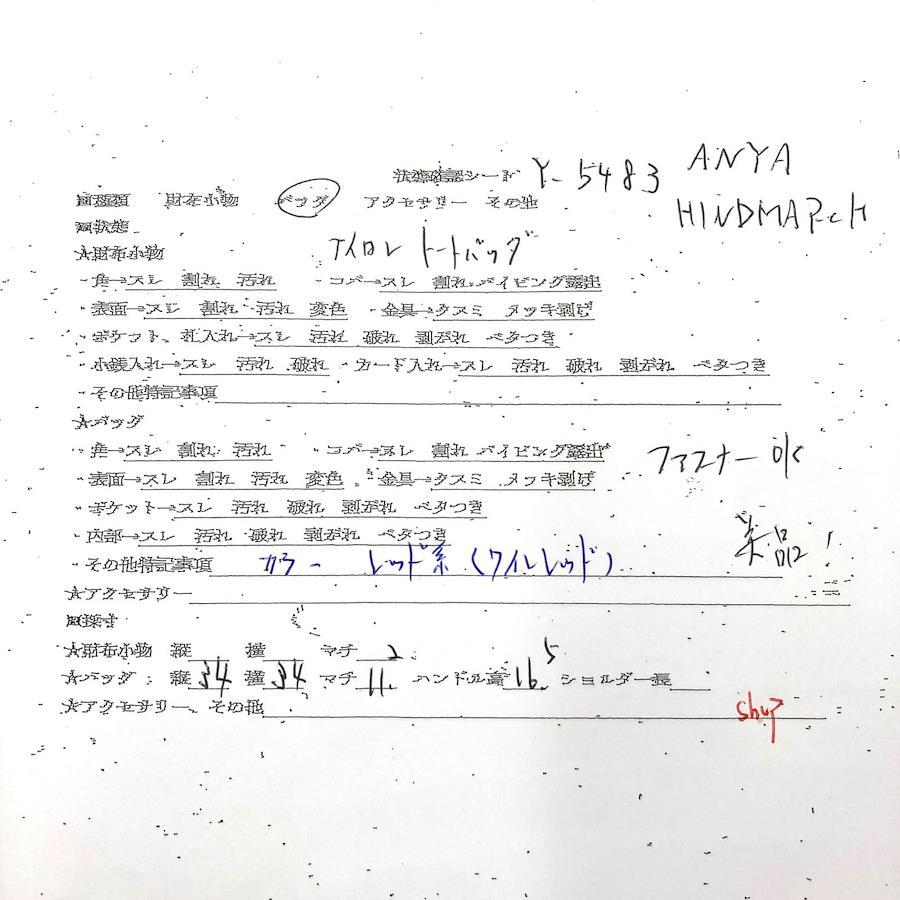 状態確認シート Y-5483 ANYA
HINDMARCH
■種類 財布小物 バッグ アクセサリー その他
■状態
ナイロン トートバッグ
★財布小物
・角→スレ 割れ 汚れ ・コバ→スレ 割れ パイピング露出
・表面→スレ 割れ 汚れ 変色 ・金具→クスミ メッキ剥げ
・ポケット、札入れ→スレ 汚れ 破れ 剥がれ ベタつき
・小銭入れ→スレ 汚れ 破れ ・カード入れ→スレ 汚れ 破れ 剥がれ ベタつき
・その他特記事項
★バッグ
・角→スレ 割れ 汚れ ・コバ→スレ 割れ パイピング露出
ファスナー ok
・表面→スレ 割れ 汚れ 変色 ・金具→クスミ メッキ剥げ
・ポケット→スレ 汚れ 破れ 剥がれ ベタつき
・内部→スレ 汚れ 破れ 剥がれ ベタつき
美品!
・その他特記事項 カラー レッド系(ワインレッド)
★アクセサリー
■採寸
★財布小物 縦 横 マチ 2
★バッグ: 縦 34 横 34 マチ 11 ハンドル高 16.5 ショルダー長
★アクセサリー、その他